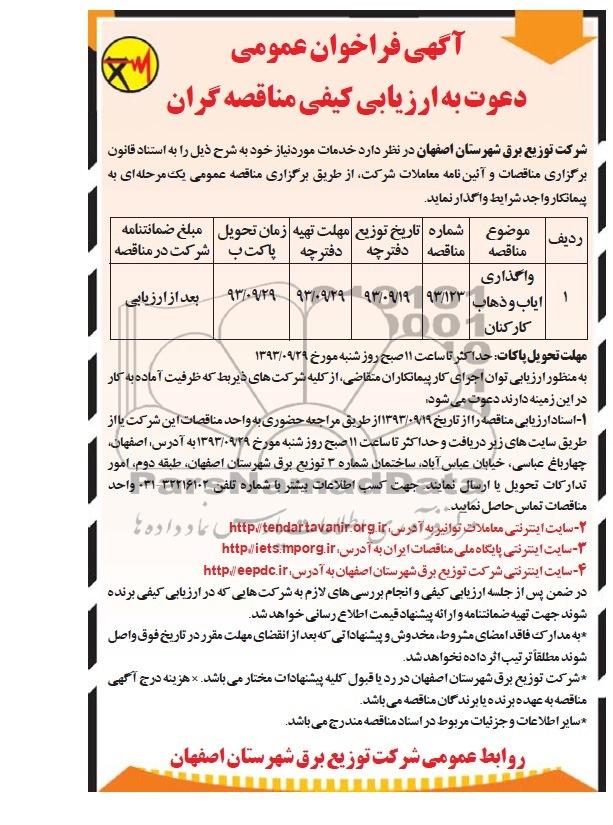 آگهی فراخوان عمومی
دعوت به ارزیابی کیفی مناقصه گران
شرکت توزیع برق شهرستان اصفهان در نظر دارد خدمات موردنیاز خود به شرح ذیل را به استناد قانون
برگزاری مناقصات و آئین نامه معاملات شرکت، از طریق برگزاری مناقصه عمومی یک مرحله‌ای به
پیمانکار واجد شرایط واگذار نماید.
ردیف موضوع مناقصه شماره مناقصه تاریخ توزیع دفترچه مهلت تهیه دفترچه زمان تحویل پاکت ب مبلغ ضمانتنامه شرکت در مناقصه
۱ واگذاری ایاب و ذهاب کارکنان ۹۳/۱۲۳ ۹۳/۰۹/۱۹ ۹۳/۰۹/۲۹ ۹۳/۰۹/۲۹ بعد از ارزیابی
مهلت تحویل پاکات: حداکثر تا ساعت ۱۱ صبح روز شنبه مورخ ۱۳۹۳/۰۹/۲۹
به منظور ارزیابی توان اجرای کار پیمانکاران متقاضی، از کلیه شرکت های ذیربط که ظرفیت آماده به کار
در این زمینه دارند دعوت می شود:
۱-اسناد ارزیابی مناقصه را از تاریخ ۱۳۹۳/۰۹/۱۹ از طریق مراجعه حضوری به واحد مناقصات این شرکت یا از
طریق سایت های زیر دریافت و حداکثر تا ساعت ۱۱ صبح روز شنبه مورخ ۱۳۹۳/۰۹/۲۹ به آدرس: اصفهان،
چهارباغ عباسی، خیابان عباس آباد، ساختمان شماره ۳ توزیع برق شهرستان اصفهان، طبقه دوم، امور
تدارکات تحویل یا ارسال نمایند. جهت کسب اطلاعات بیشتر با شماره تلفن ۳۲۲۱۶۱۰۲-۰۳۱ واحد
مناقصات تماس حاصل نمایید.
۲-سایت اینترنتی معاملات توانیر به آدرس: http://tendartavanir.org.ir
۳-سایت اینترنتی پایگاه ملی مناقصات ایران به آدرس: http://iets.mporg.ir
۴-سایت اینترنتی شرکت توزیع برق شهرستان اصفهان به آدرس: http://eepdc.ir
در ضمن پس از جلسه ارزیابی کیفی و انجام بررسی های لازم به شرکت هایی که در ارزیابی کیفی برنده
شوند جهت تهیه ضمانتنامه و ارائه پیشنهاد قیمت اطلاع رسانی خواهد شد.
*به مدارک فاقد امضای مشروط، مخدوش و پیشنهاداتی که بعد از انقضای مهلت مقرر در تاریخ فوق واصل
شوند مطلقاً ترتیب اثر داده نخواهد شد.
*شرکت توزیع برق شهرستان اصفهان در رد یا قبول کلیه پیشنهادات مختار می باشد. × هزینه درج آگهی
مناقصه به عهده برنده یا برندگان مناقصه می باشد.
*سایر اطلاعات و جزئیات مربوط در اسناد مناقصه مندرج می باشد.
روابط عمومی شرکت توزیع برق شهرستان اصفهان